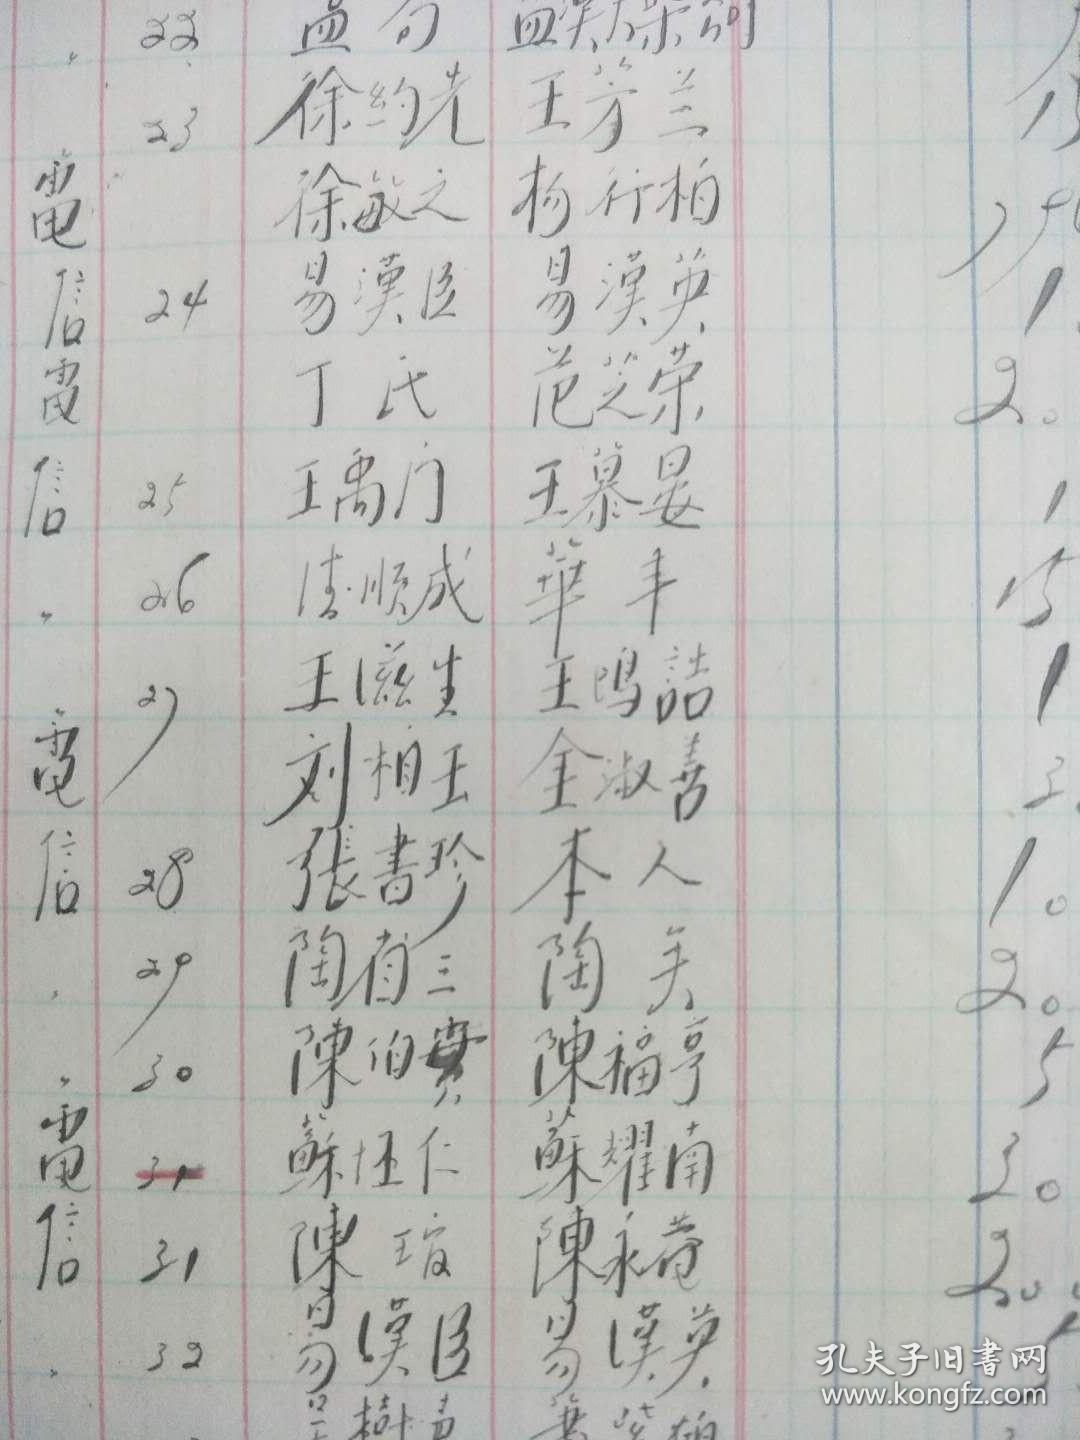 22
23 徐約先 王芳兰
電 徐敏之 杨行柏
信 24 易漢臣 易漢英 1
電 丁氏 范芝荣 20
信 25 王禹门 王慕晏 1
〃 26 顺成 華丰 15
27 王滋生 王鸣喆 1
電 刘相玉 金淑善
信 28 張書珍 本人 10
29 陶 三 陶 20
〃 30 陳伯實 陳福亨 5
電 31 蘇 仁 蘇耀南 30
信 31 陳 陳永菴
32 易漢臣 易漢英
孔夫子旧書网
www.kongfz.com